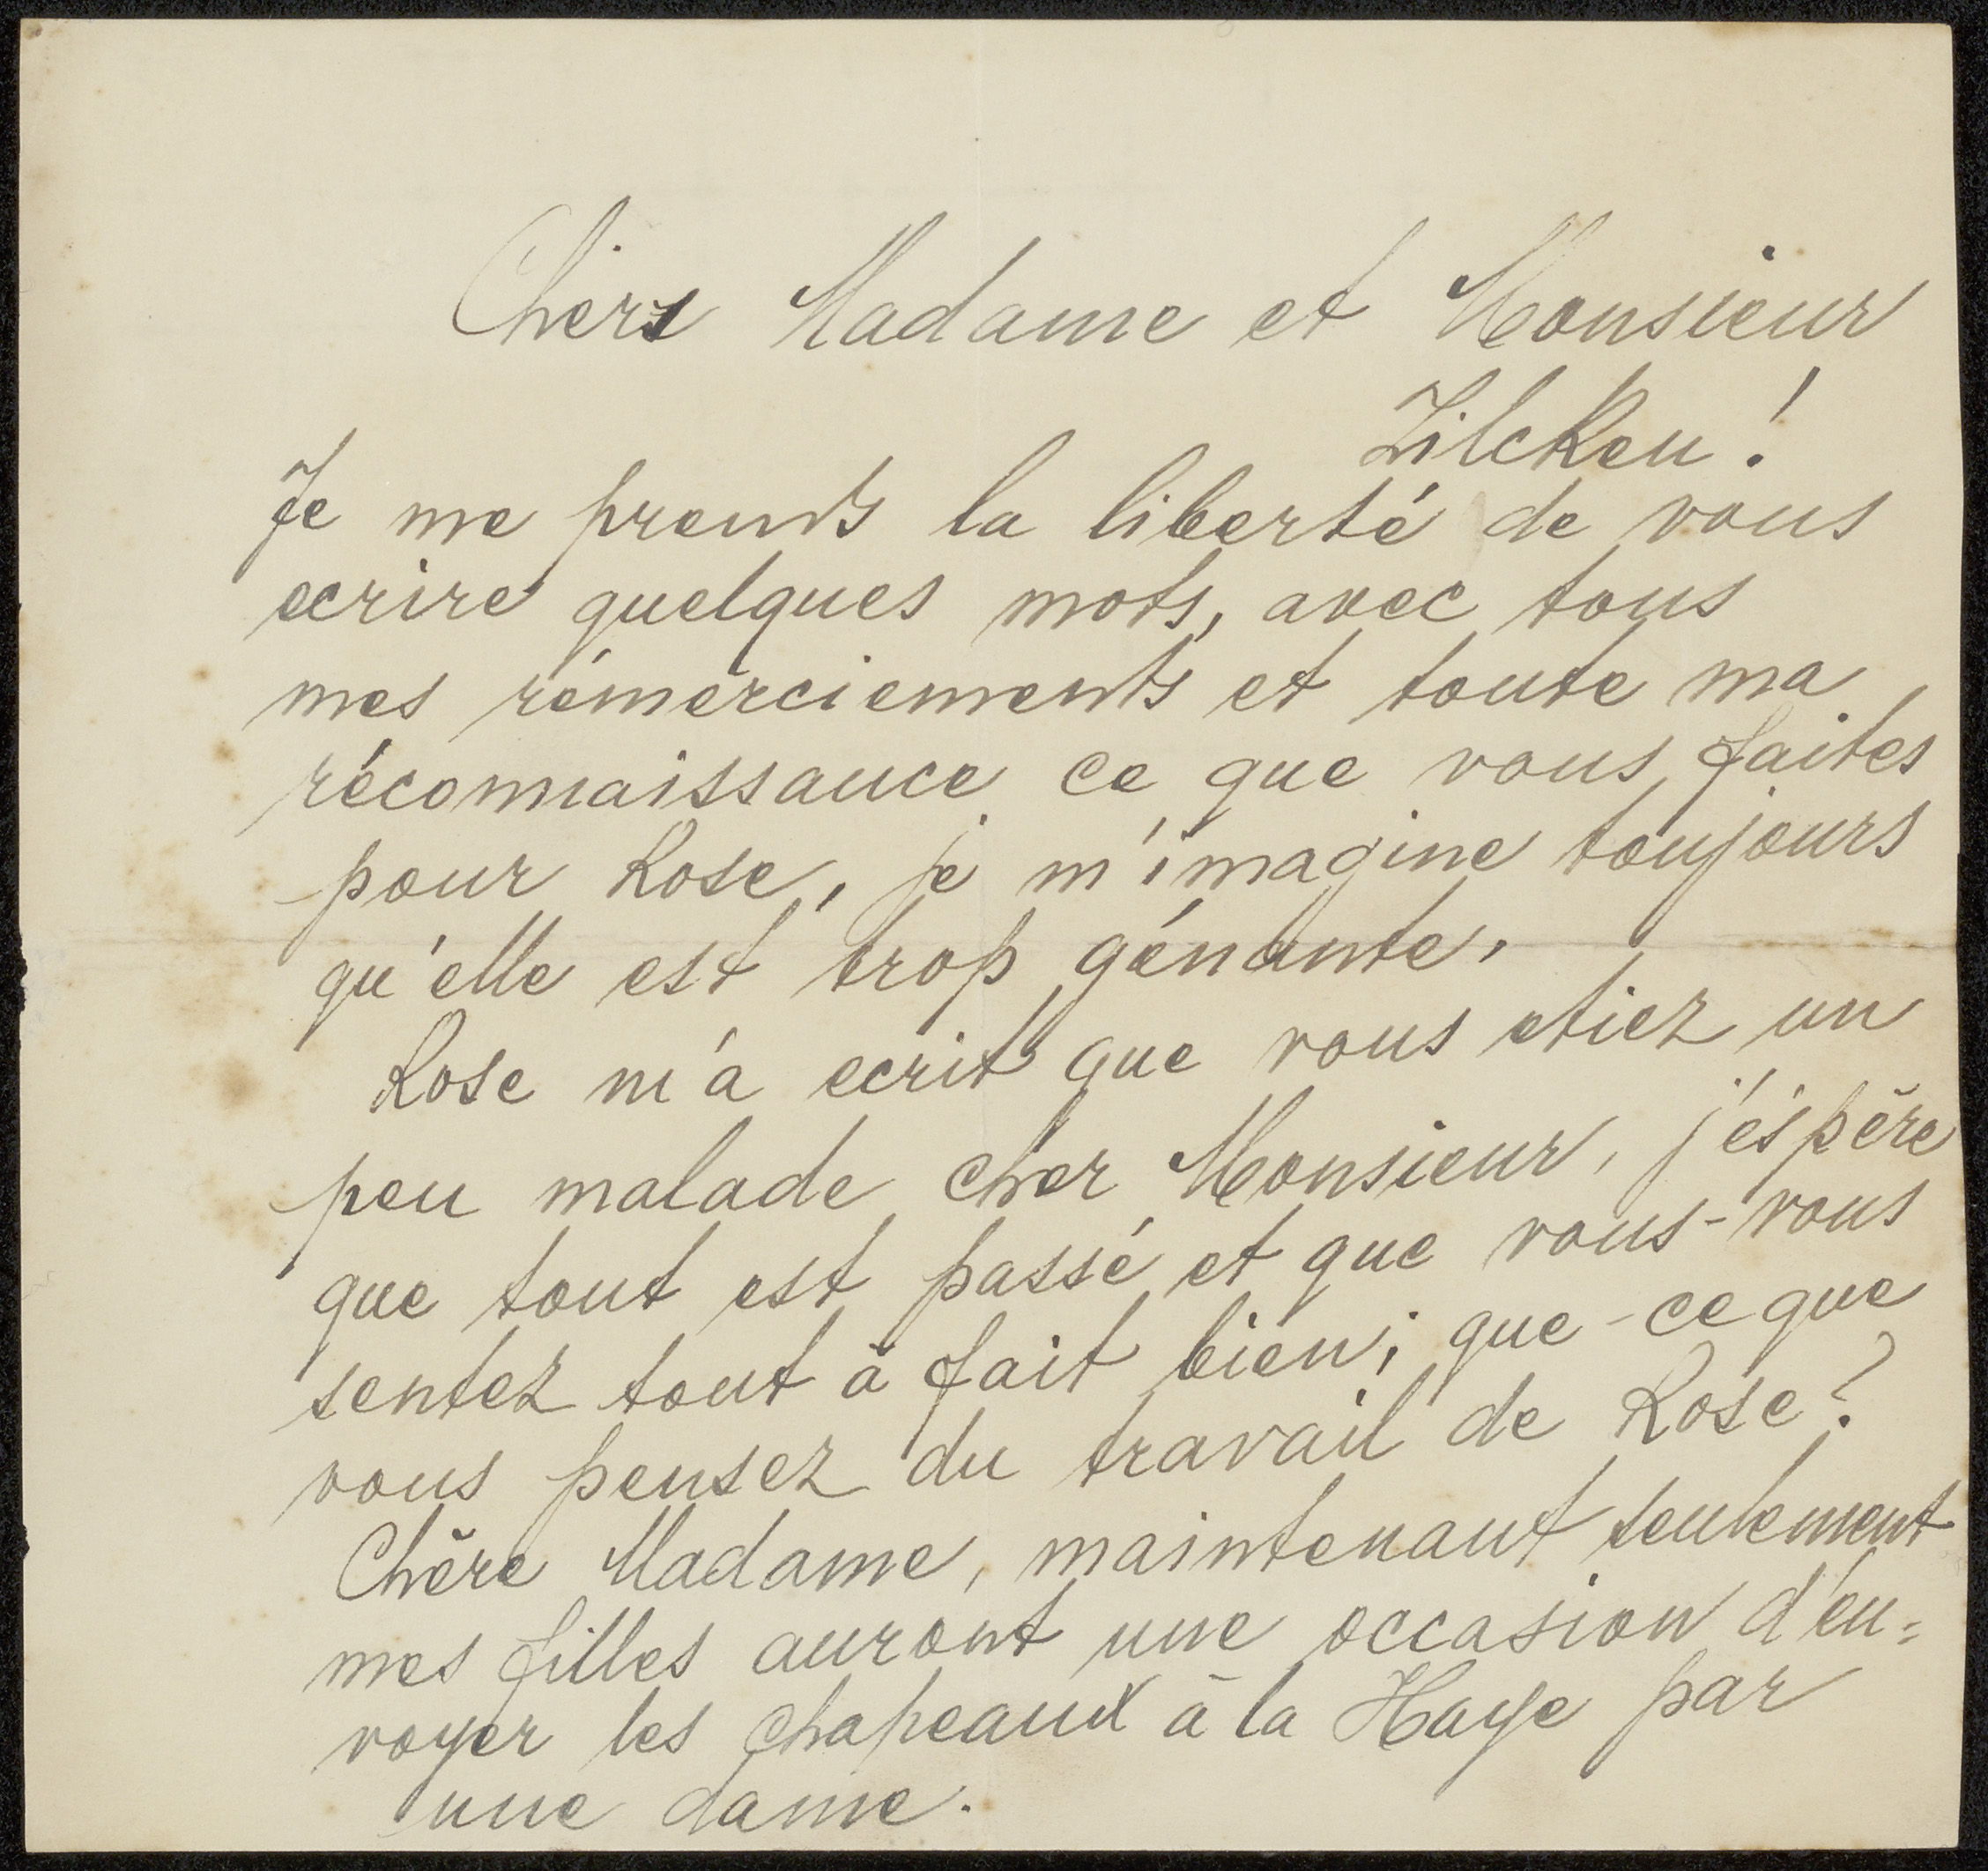 Chers Madame et Monsieur
Zilcken!
Je me prends la liberté de vous
ecrire quelques mots, avec tous
mes rémérciements et toute ma
réconnaissance ce que vous faites
pour Rose, je m'imagine toujours
qu'elle est trop génante,
Rose m'a ecrit que vous etiez un
peu malade cher Monsieur, j'éspère
que tout est passé et que vous-vous
sentez tout à fait bien; que-ce que
vous pensez du travail de Rose?
Chère Madame, maintenant seulement
mes filles auront une occasion d'en=
voyer les chapeaux à la Haye par
une dame.